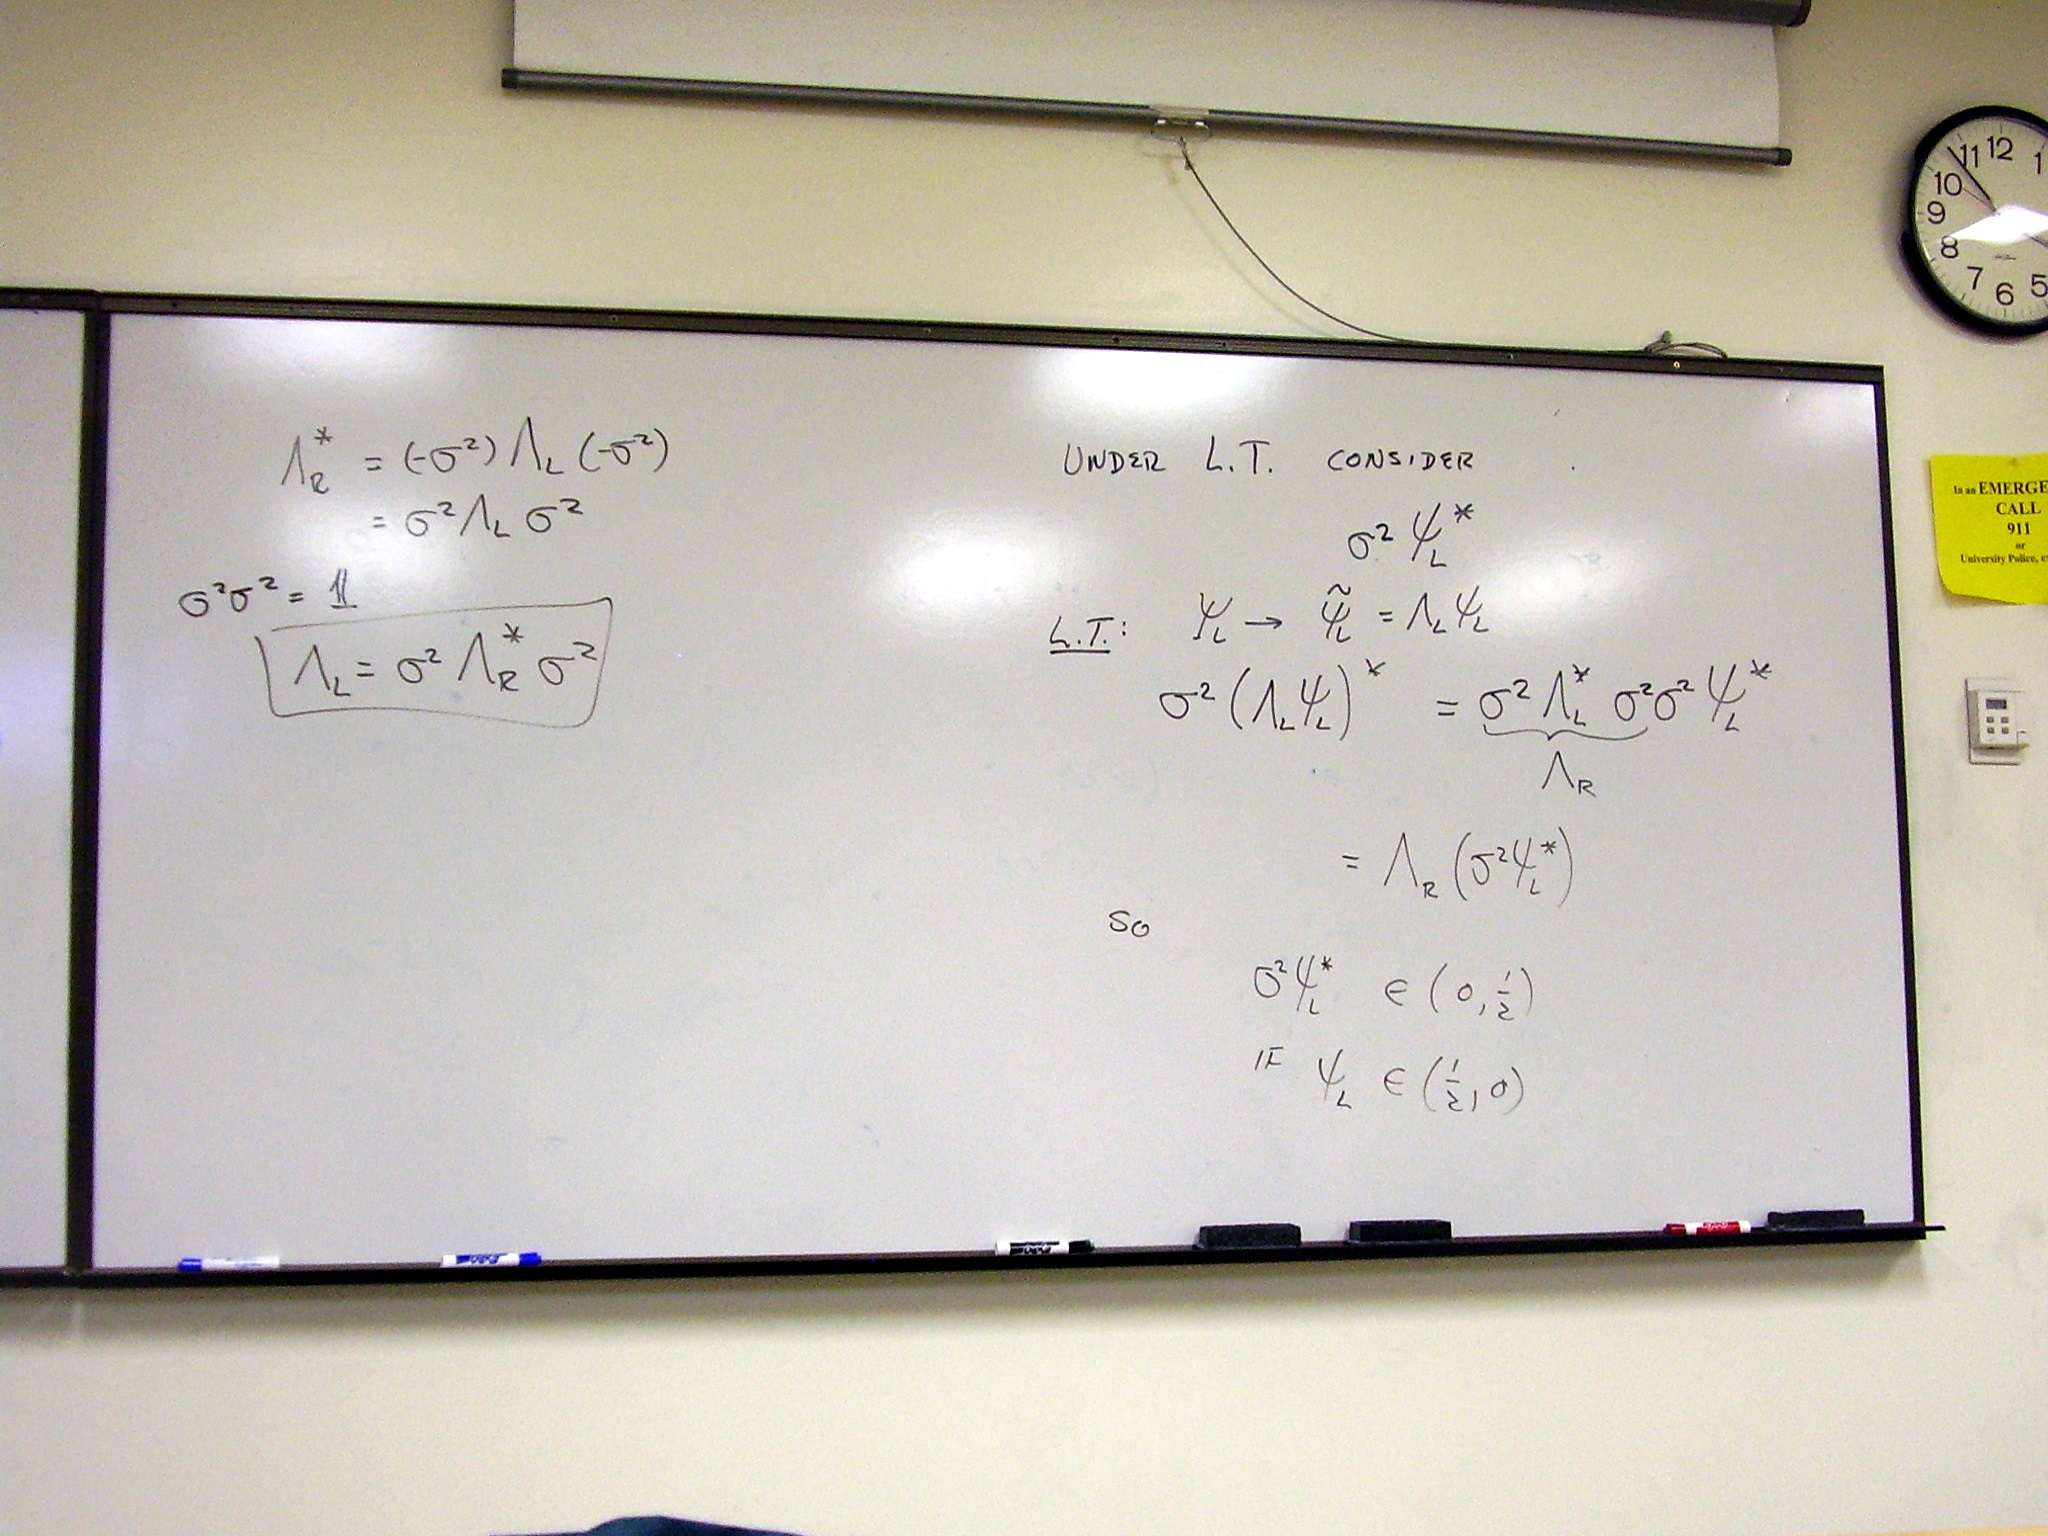 Λ_R^* = (-σ²) Λ_L (-σ²)
= σ² Λ_L σ²
σ²σ² = 𝟙
Λ_L = σ² Λ_R^* σ²
UNDER L.T. CONSIDER
σ² ψ_L^*
L.T.: ψ_L → ψ̃_L = Λ_L ψ_L
σ² (Λ_L ψ_L)^* = σ² Λ_L^* σ²σ² ψ_L^*
Λ_R
= Λ_R (σ² ψ_L^*)
SO
σ² ψ_L^* ∈ (0, 1/2)
IF ψ_L ∈ (1/2, 0)
12
1
11
10
9
8
7
6
5
In an EMERGE
CALL
911
or
University Police,